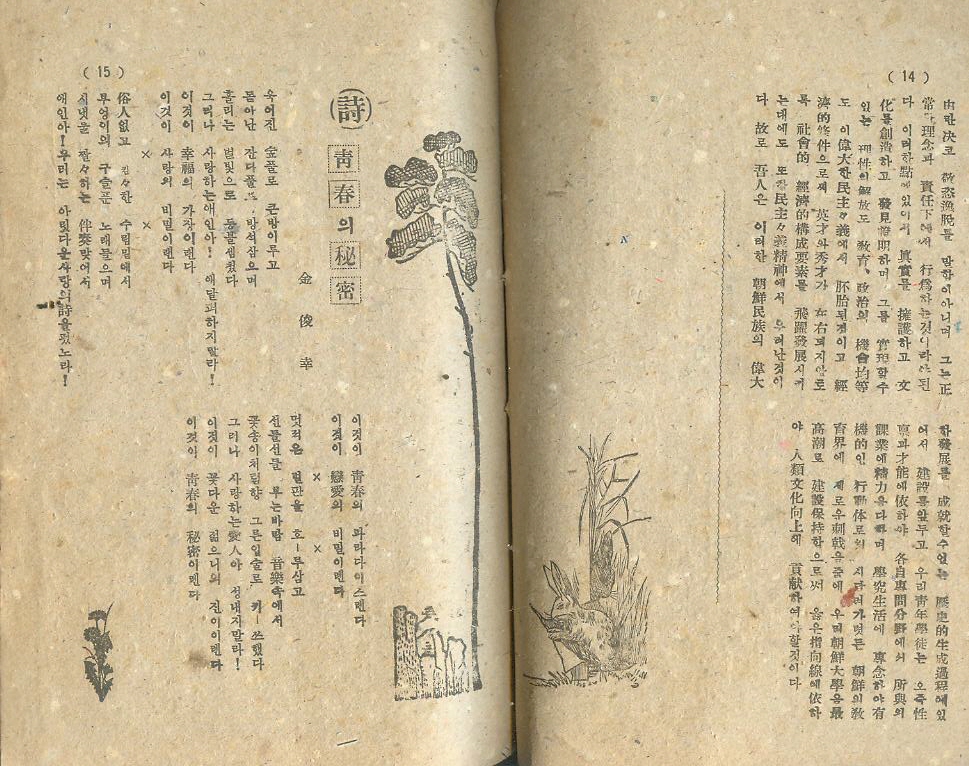 ( 14 )
由한 決코 放恣漁脫를 말함이아니며 그는正
常한理念과 責任下에서 行爲하는것이라야된
다 이러한點에있어서 眞實를 擁護하고 文
化를創造하고 發見證明하며 그를 實現할수
있는 理性의解放도 敎育、政治의 機會均等
도 이偉大한民主々義에서 胚胎된것이고 經
濟的條件으로써 英才와秀才가 左右되지않로
록 社會的 經濟的構成要素를 飛躍發展시켜
는데에도 또한民主々義精神에서 우러난것이
다 故로 吾人은 이러한 朝鮮民族의 偉大
한發展를 成就할수없는 歷史的生成過程에있
어서 建設를앞두고 우리靑年學徒는 오즉性
稟과才能에依하야 各自專門分野에서 所與의
課業에精力을다하며 學究生活에 專念하야有
機的인 行動体로의 朝鮮의敎
育界에 새로운刺戟을줌에 우리朝鮮大學을最
高潮로 建設保持함으로써 옳은指向線에依하
야 人類文化向上에 貢献하여야할것이다
( 15 )
(詩)
靑春의秘密
金俊幸
욱어진 숲풀로 큰방이루고
돋아난 잔디풀로 방석삼으며
흘리는 별빛으로 등불셈첬다
그러나 사랑하는애인아! 애달퍼하지말라!
이것이 幸福의 가장이렌다
이것이 사랑의 비밀이렌다
× ×
俗人없고 깊々한 수림밑에서
부엉이의 구슬픈 노래들으며
시냇물 졸々하는 伴奏맞어서
애인아!우리는 아릿다운사랑의詩을펐노라!
이것이 靑春의 파라다이스렌다
이것이 戀愛의 비밀이렌다
× ×
멋적은 벌판을 호ー루삼고
선들선들 부는바람 音樂속에서
꽃송이처럼향그른입술로 키ー쓰했다
그러나 사랑하는愛人아 성내지말라!
이것이 꽃다운 젊으니의 진이이렌다
이것이 靑春의 秘密이렌다